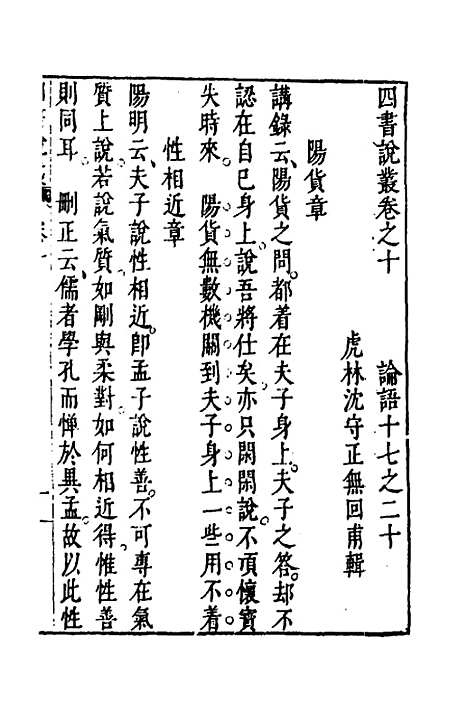 四書說叢卷之十　論語十七之二十
虎林沈守正無回甫輯
陽貨章
講錄云、陽貨之問。都着在夫子身上。夫子之答。却不
認在自己身上。說吾將仕矣。亦只閑閑說。不頂懷寳
失時來。　陽貨無數機關到夫子身上一些用不着
性相近章
陽明云、夫子說性相近。卽孟子說性善。不可專在氣
質上說。若說氣質如剛與柔對如何相近得。惟性善
則同耳　刪正云、儒者學孔而憚於異孟。故以此性